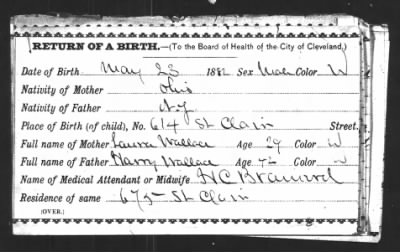 RETURN OF A BIRTH.—(To the Board of Health of the City of Cleveland.)
Date of Birth May 23 1882 Sex Male Color W
Nativity of Mother Ohio
Nativity of Father N.Y.
Place of Birth (of child), No. 614 St Clair Street.
Full name of Mother Laura Wallace Age 29 Color W
Full name of Father Harry Wallace Age Color W
Name of Medical Attendant or Midwife H C Brainard
Residence of same 675 St Clair
(OVER.)